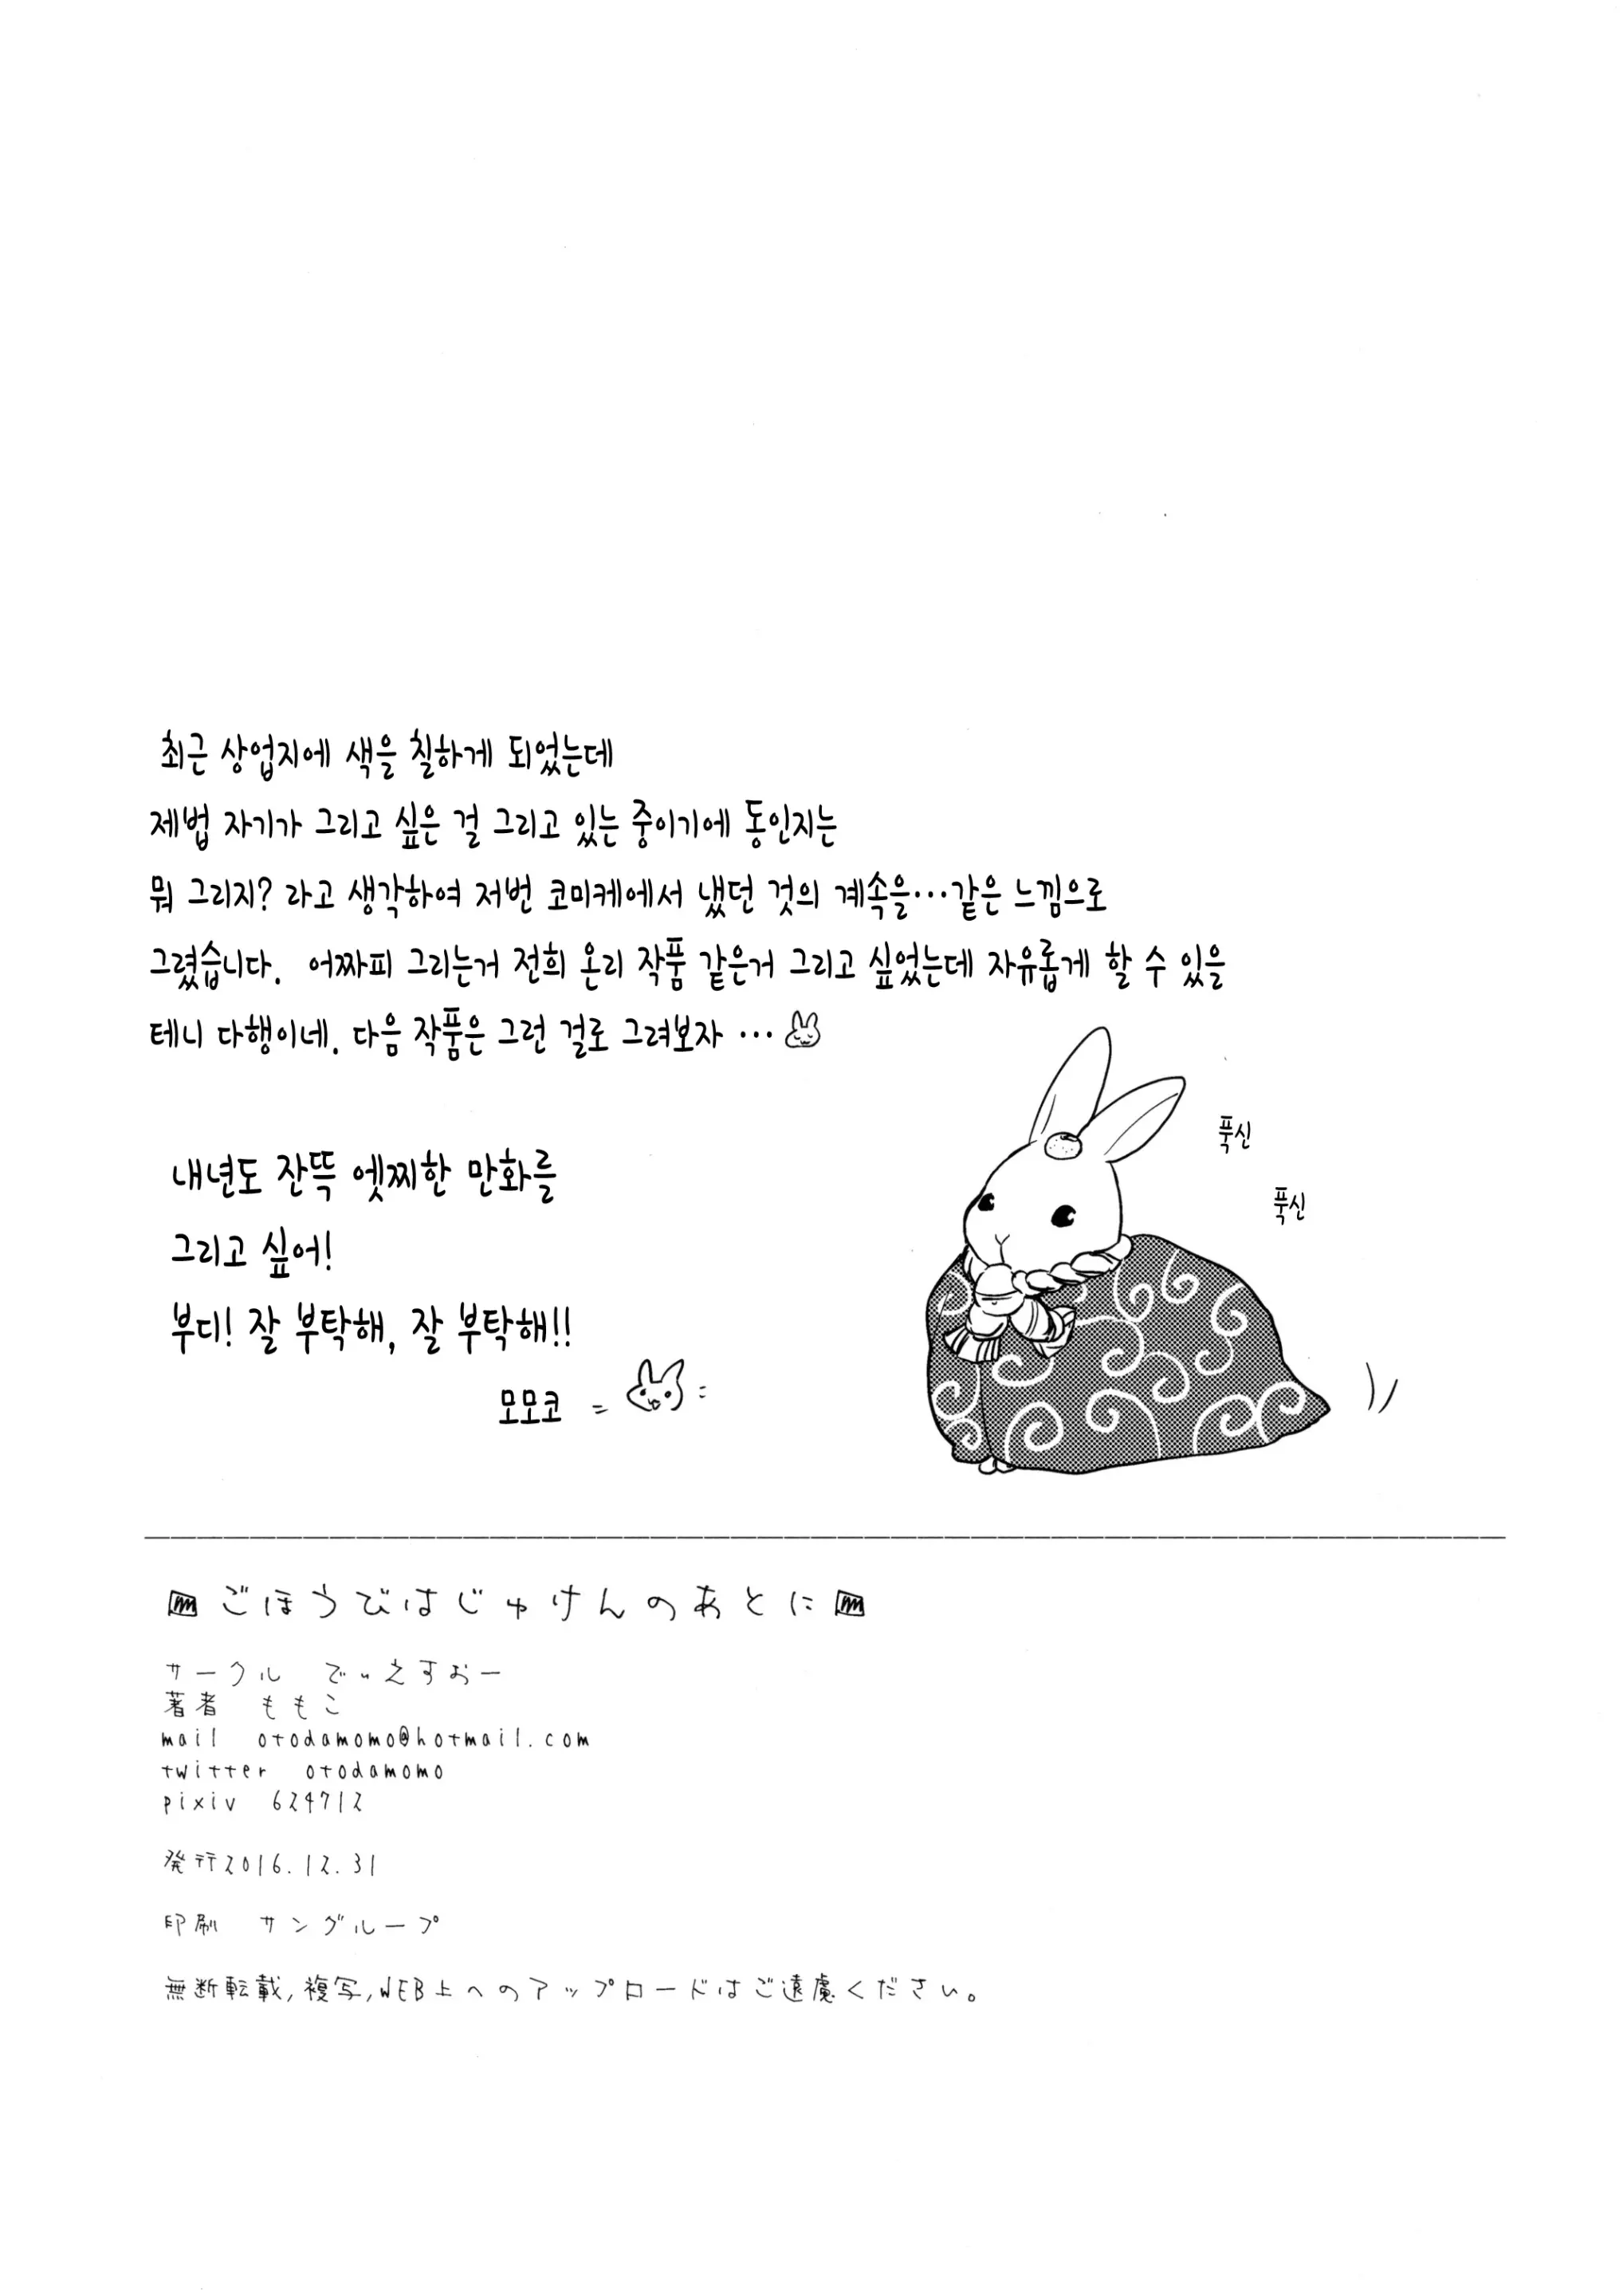 최근 상업지에 색을 칠하게 되었는데
제법 자기가 그리고 싶은 걸 그리고 있는 중이기에 동인지는
뭐 그리지? 라고 생각하여 저번 코미케에서 냈던 것의 계속을…같은 느낌으로
그렸습니다. 어짜피 그리는거 전희 온리 작품 같은거 그리고 싶었는데 자유롭게 할 수 있을
테니 다행이네. 다음 작품은 그런 걸로 그려보자 …
푹신
푹신
내년도 잔뜩 엣찌한 만화를
그리고 싶어!
부디! 잘 부탁해, 잘 부탁해!!
모모코
ごほうびはじゅけんのあとに
サークル でぃえすおー
著者 ももこ
mail otodamomo@hotmail.com
twitter otodamomo
pixiv 624712
発行2016.12.31
印刷 サングループ
無断転載,複写,WEB上へのアップロードはご遠慮ください。